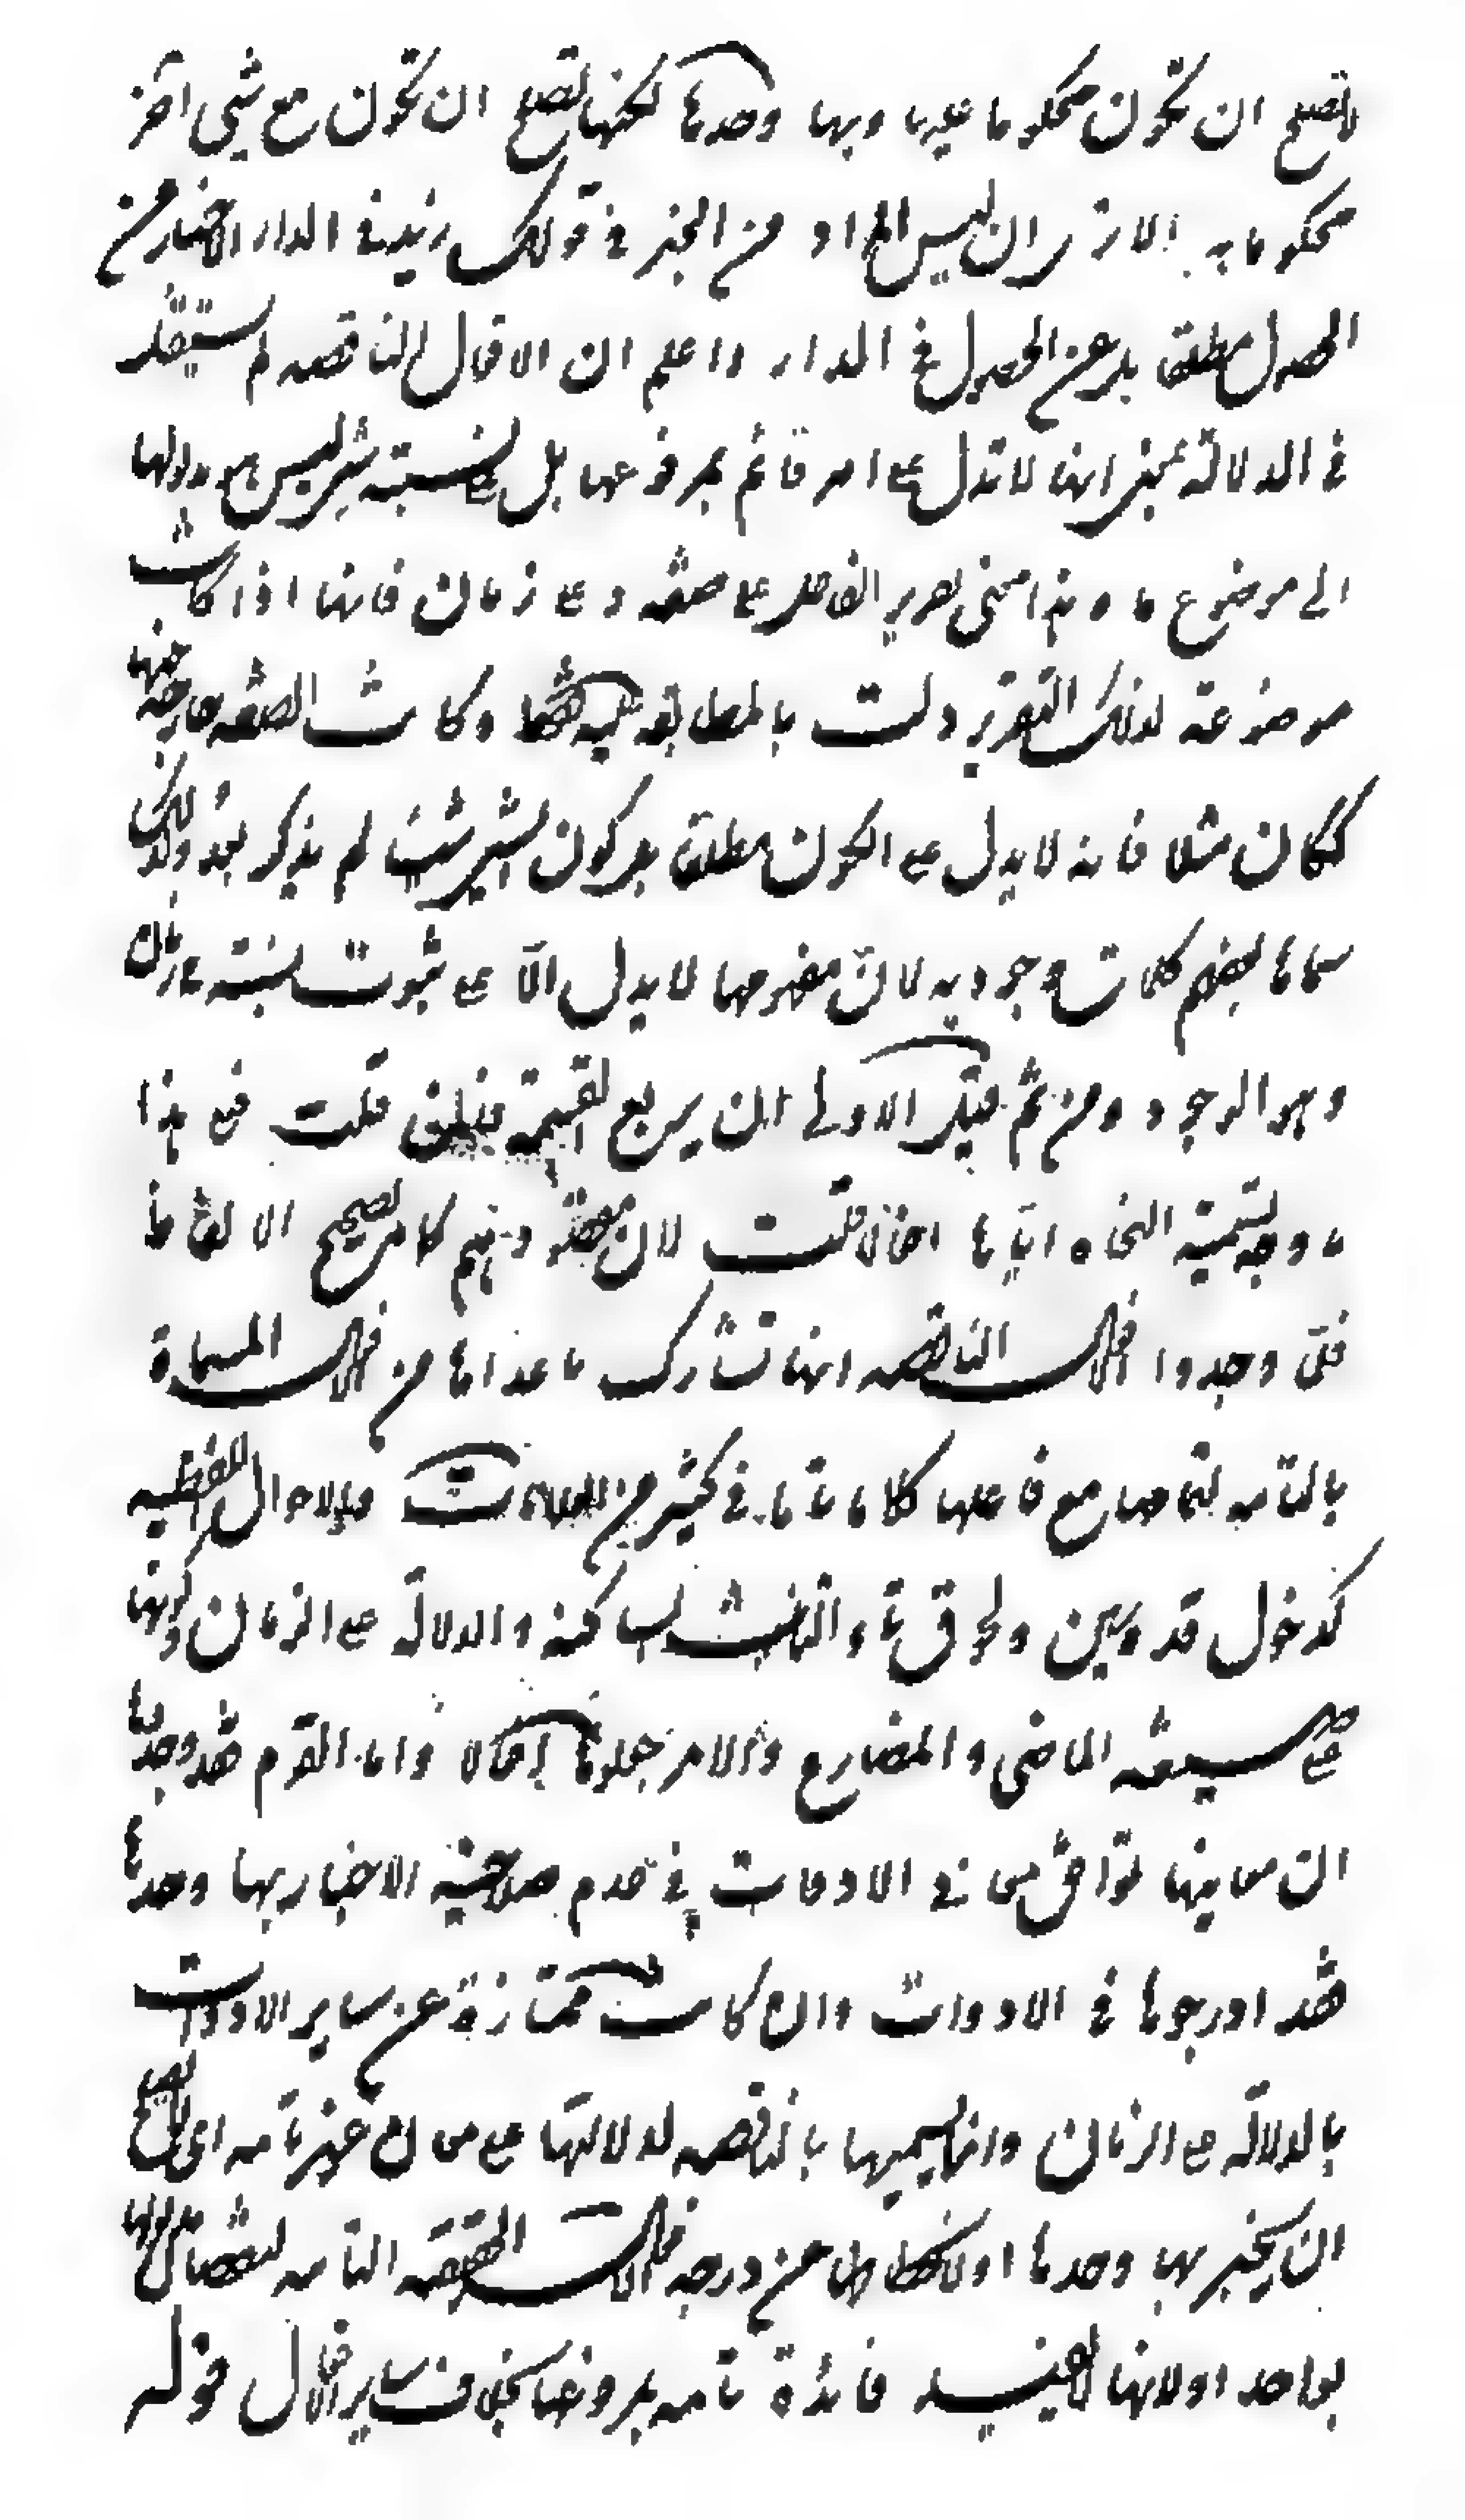 لا تصلح ان تكون محكوما عليها وبها وحدها لكنها تصلح ان تكون مع شيء آخر
محكوما به الا ترى ان ليس المراد من الخبر في قولك زيد في الدار الاخبار من
الحصول مطلقا بل عن الحصول في الدار واعلم ان الافعال الناقصة لم تستقل
في الدلالة بمعنى انها لا تدل على امر قائم بمرفوعها بل على نسبة شيء ليس هو مدلولها
الى موضوع ما وهذا معنى تقرير الفاعل على صفة وعلى زمان فانها اذا كانت
موضوعة لذلك التقرير دلت بالمطابقة عليه فقط وكانت الصفة خارجة عنها
ككان مثلا فانه لا يدل على الكون مطلقا بل كون الشيء شيئا لم يذكر بعد ولذلك
سماها بعضهم كلمات وجودية لان مفهومها لا يدل الا على ثبوت نسبة في زمان
وهو الوجود ومن ثم قيل الاولى ان يربع القسمة فان قلت فعلى هذا
ما وجه تسمية النحاة اياها افعالا قلت لان نظرهم لما كان لتصحيح الالفاظ
فلما وجدوا افعال الناقصة انها تشارك ما عداها من الافعال المسماة
بالتامة لتمامها مع فاعلها كلاما تاما في كثير من العلامات والاحوال اللفظية
كدخول قد وسين ولحوق تاء التانيث الساكنة والدلالة على الزمان وكونها
على صيغة الماضي والمضارع والامر جعلوها افعالا واما القوم فقد وجدوا
ان معانيها توافق معاني الادوات في عدم صلاحية الاخبار بها وحدها
فقد ادرجوها في الادوات وان كانت ممتازة عن ساير الادوات
بالدلالة على الزمان وانما تسميتها بالناقصة لدلالتها على معان غير تامة اي لا تصلح
ان يخبر بها وحدها او لانحطاطها من درجة الافعال الحقيقة التامة لنقصان
بواحد او لانها لا تفيد فائدة تامة بمرفوعها بخلاف ساير الافعال قوله